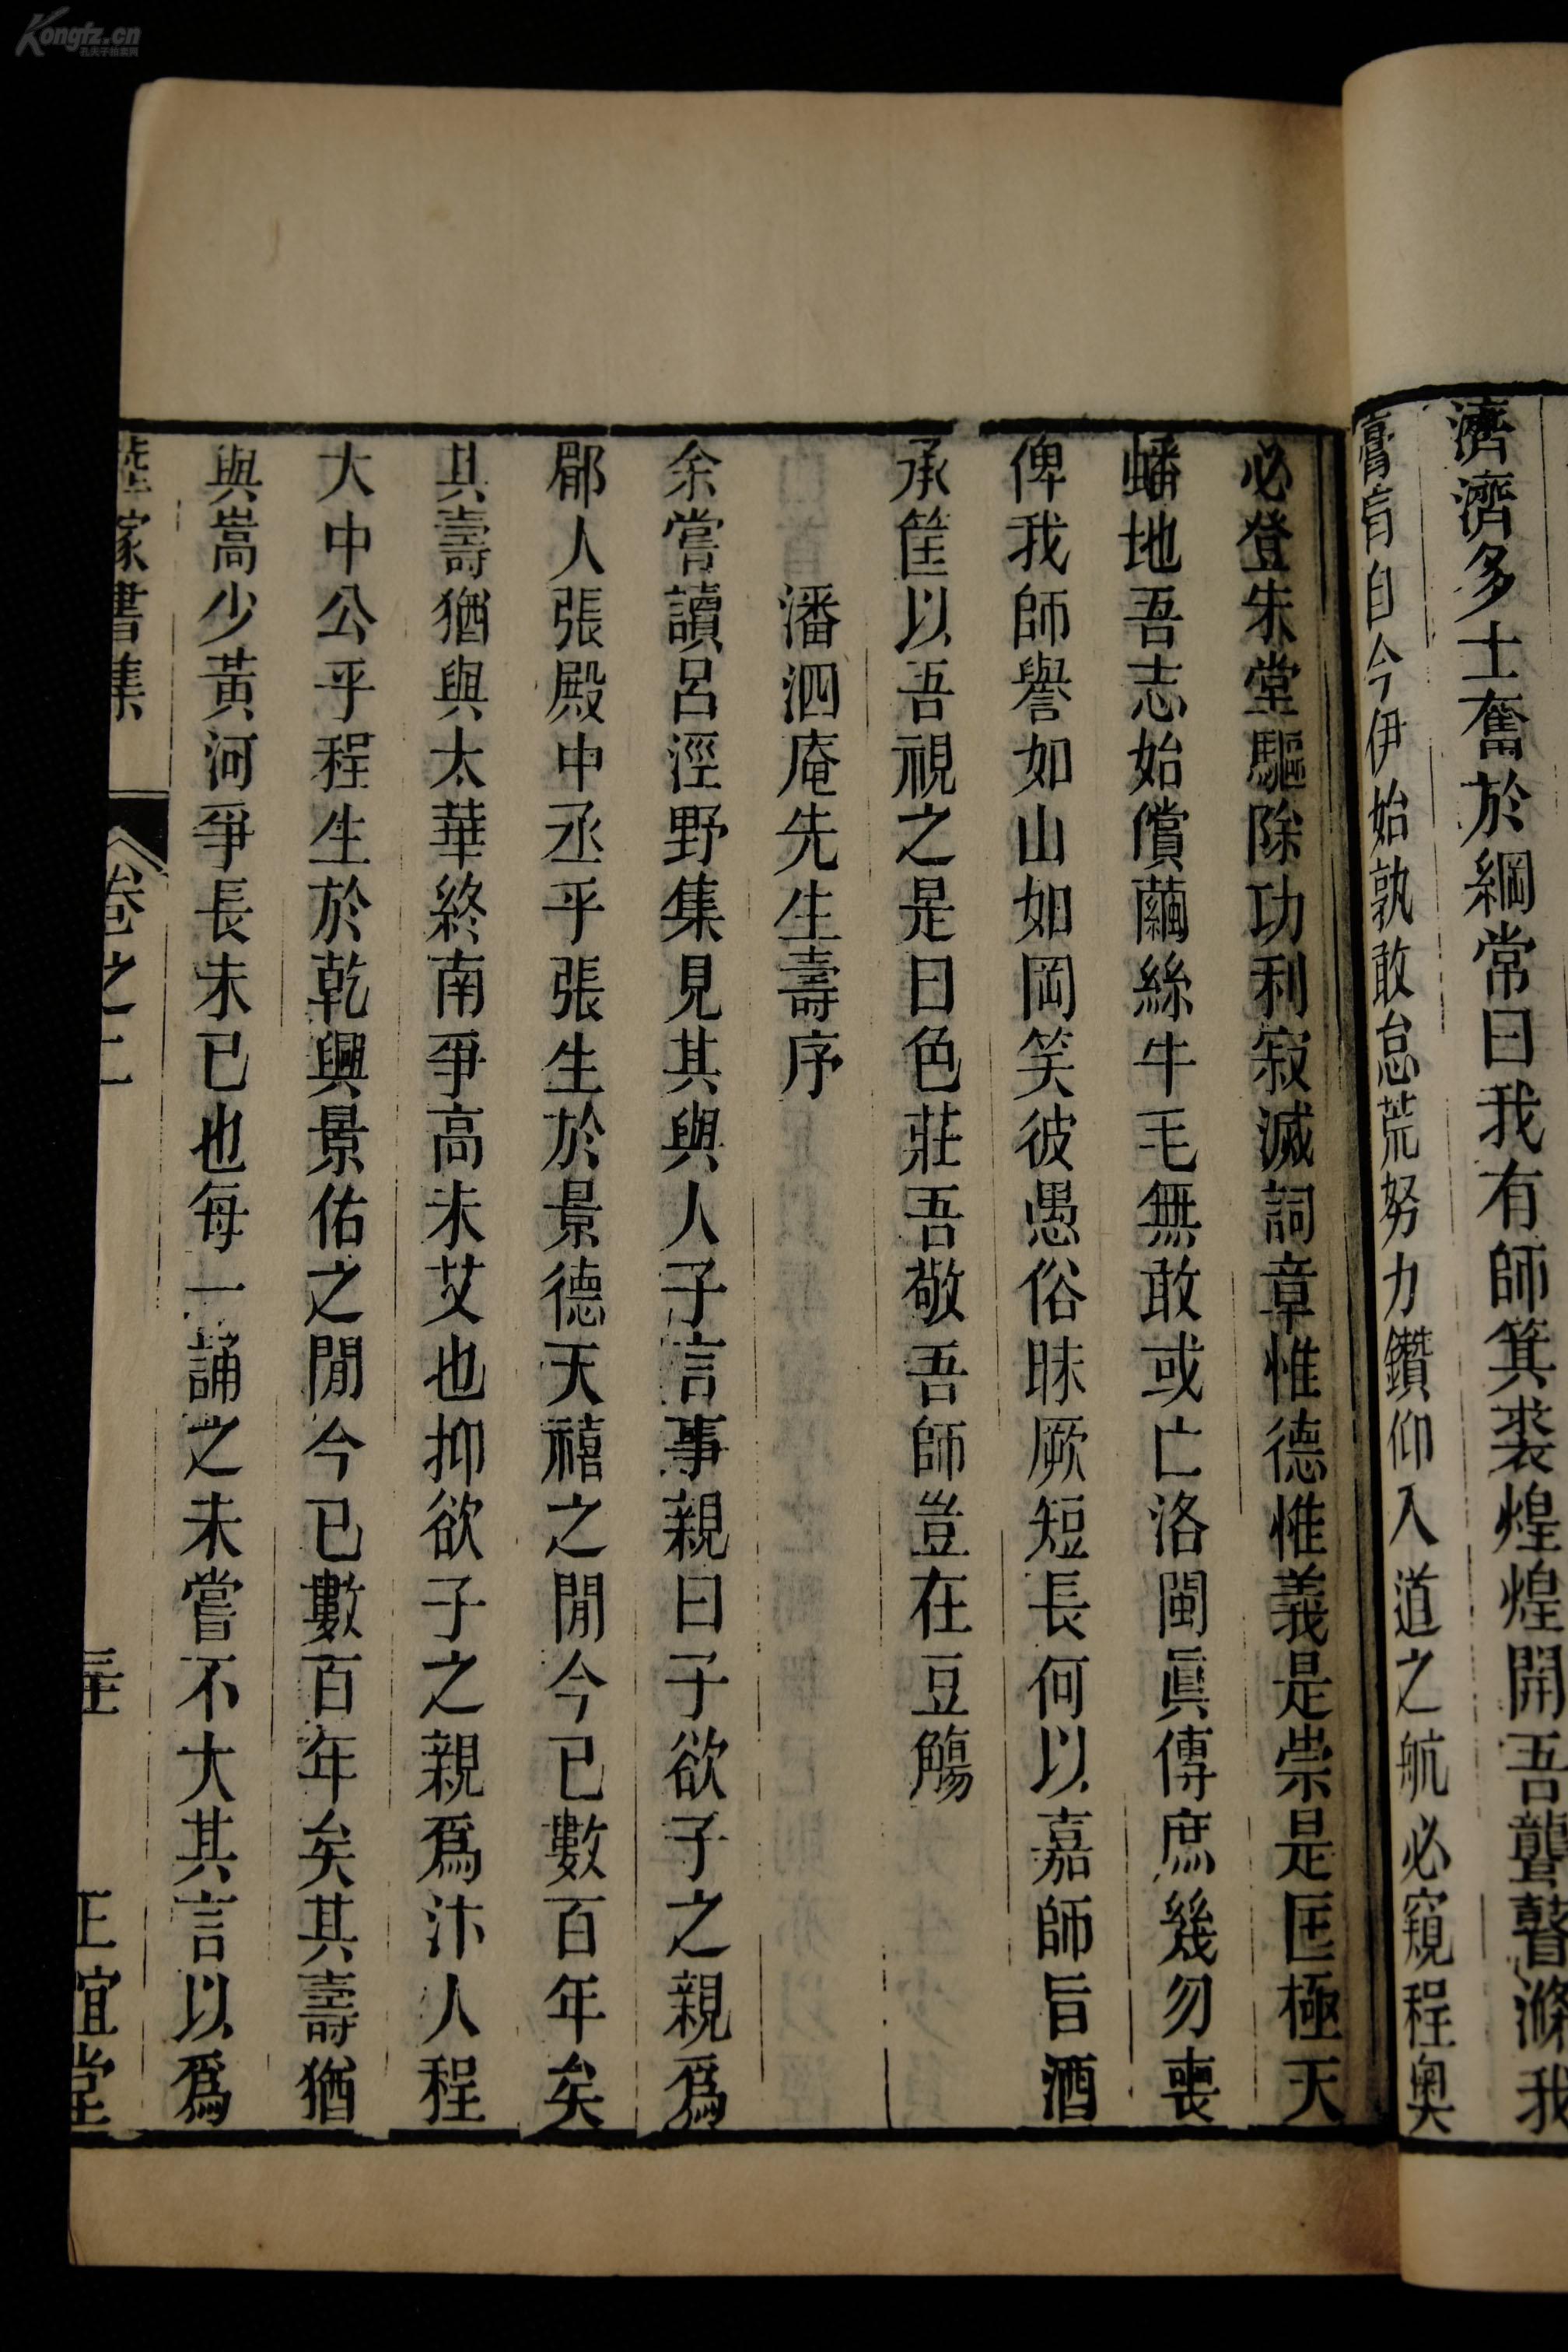 濟濟多士奮於綱常曰我有師箕裘煌煌開吾聾瞽滌我
膏肓自今伊始孰敢怠荒努力鑽仰入道之航必窺程奧
必登朱堂驅除功利寂滅詞章惟德惟義是崇是匡極天
蟠地吾志始償繭絲牛毛無敢或亡洛閩眞傳庶幾勿喪
俾我師譽如山如岡笑彼愚俗昧厥短長何以嘉師旨酒
承筐以吾視之是曰色莊吾敬吾師豈在豆觴
潘泗庵先生壽序
余嘗讀呂涇野集見其與人子言事親曰子欲子之親爲
郿人張殿中丞乎張生於景德天禧之閒今已數百年矣
其壽猶與太華終南爭高未艾也抑欲子之親爲汴人程
大中公乎程生於乾興景佑之閒今已數百年矣其壽猶
與嵩少黃河爭長未已也每一誦之未嘗不大其言以爲
卷之二
正誼堂
Kongfz.cn